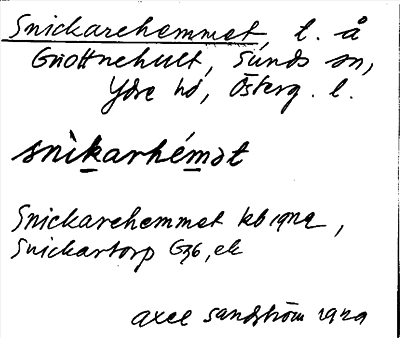 Snickarehemmet, l. å
Gnottnehult, Sunds sn,
Ydre hd, Österg. l.
snìkarhémət
Snickarehemmet kb 1929,
Snickartorp G36, ek
Axel Sandström 1929